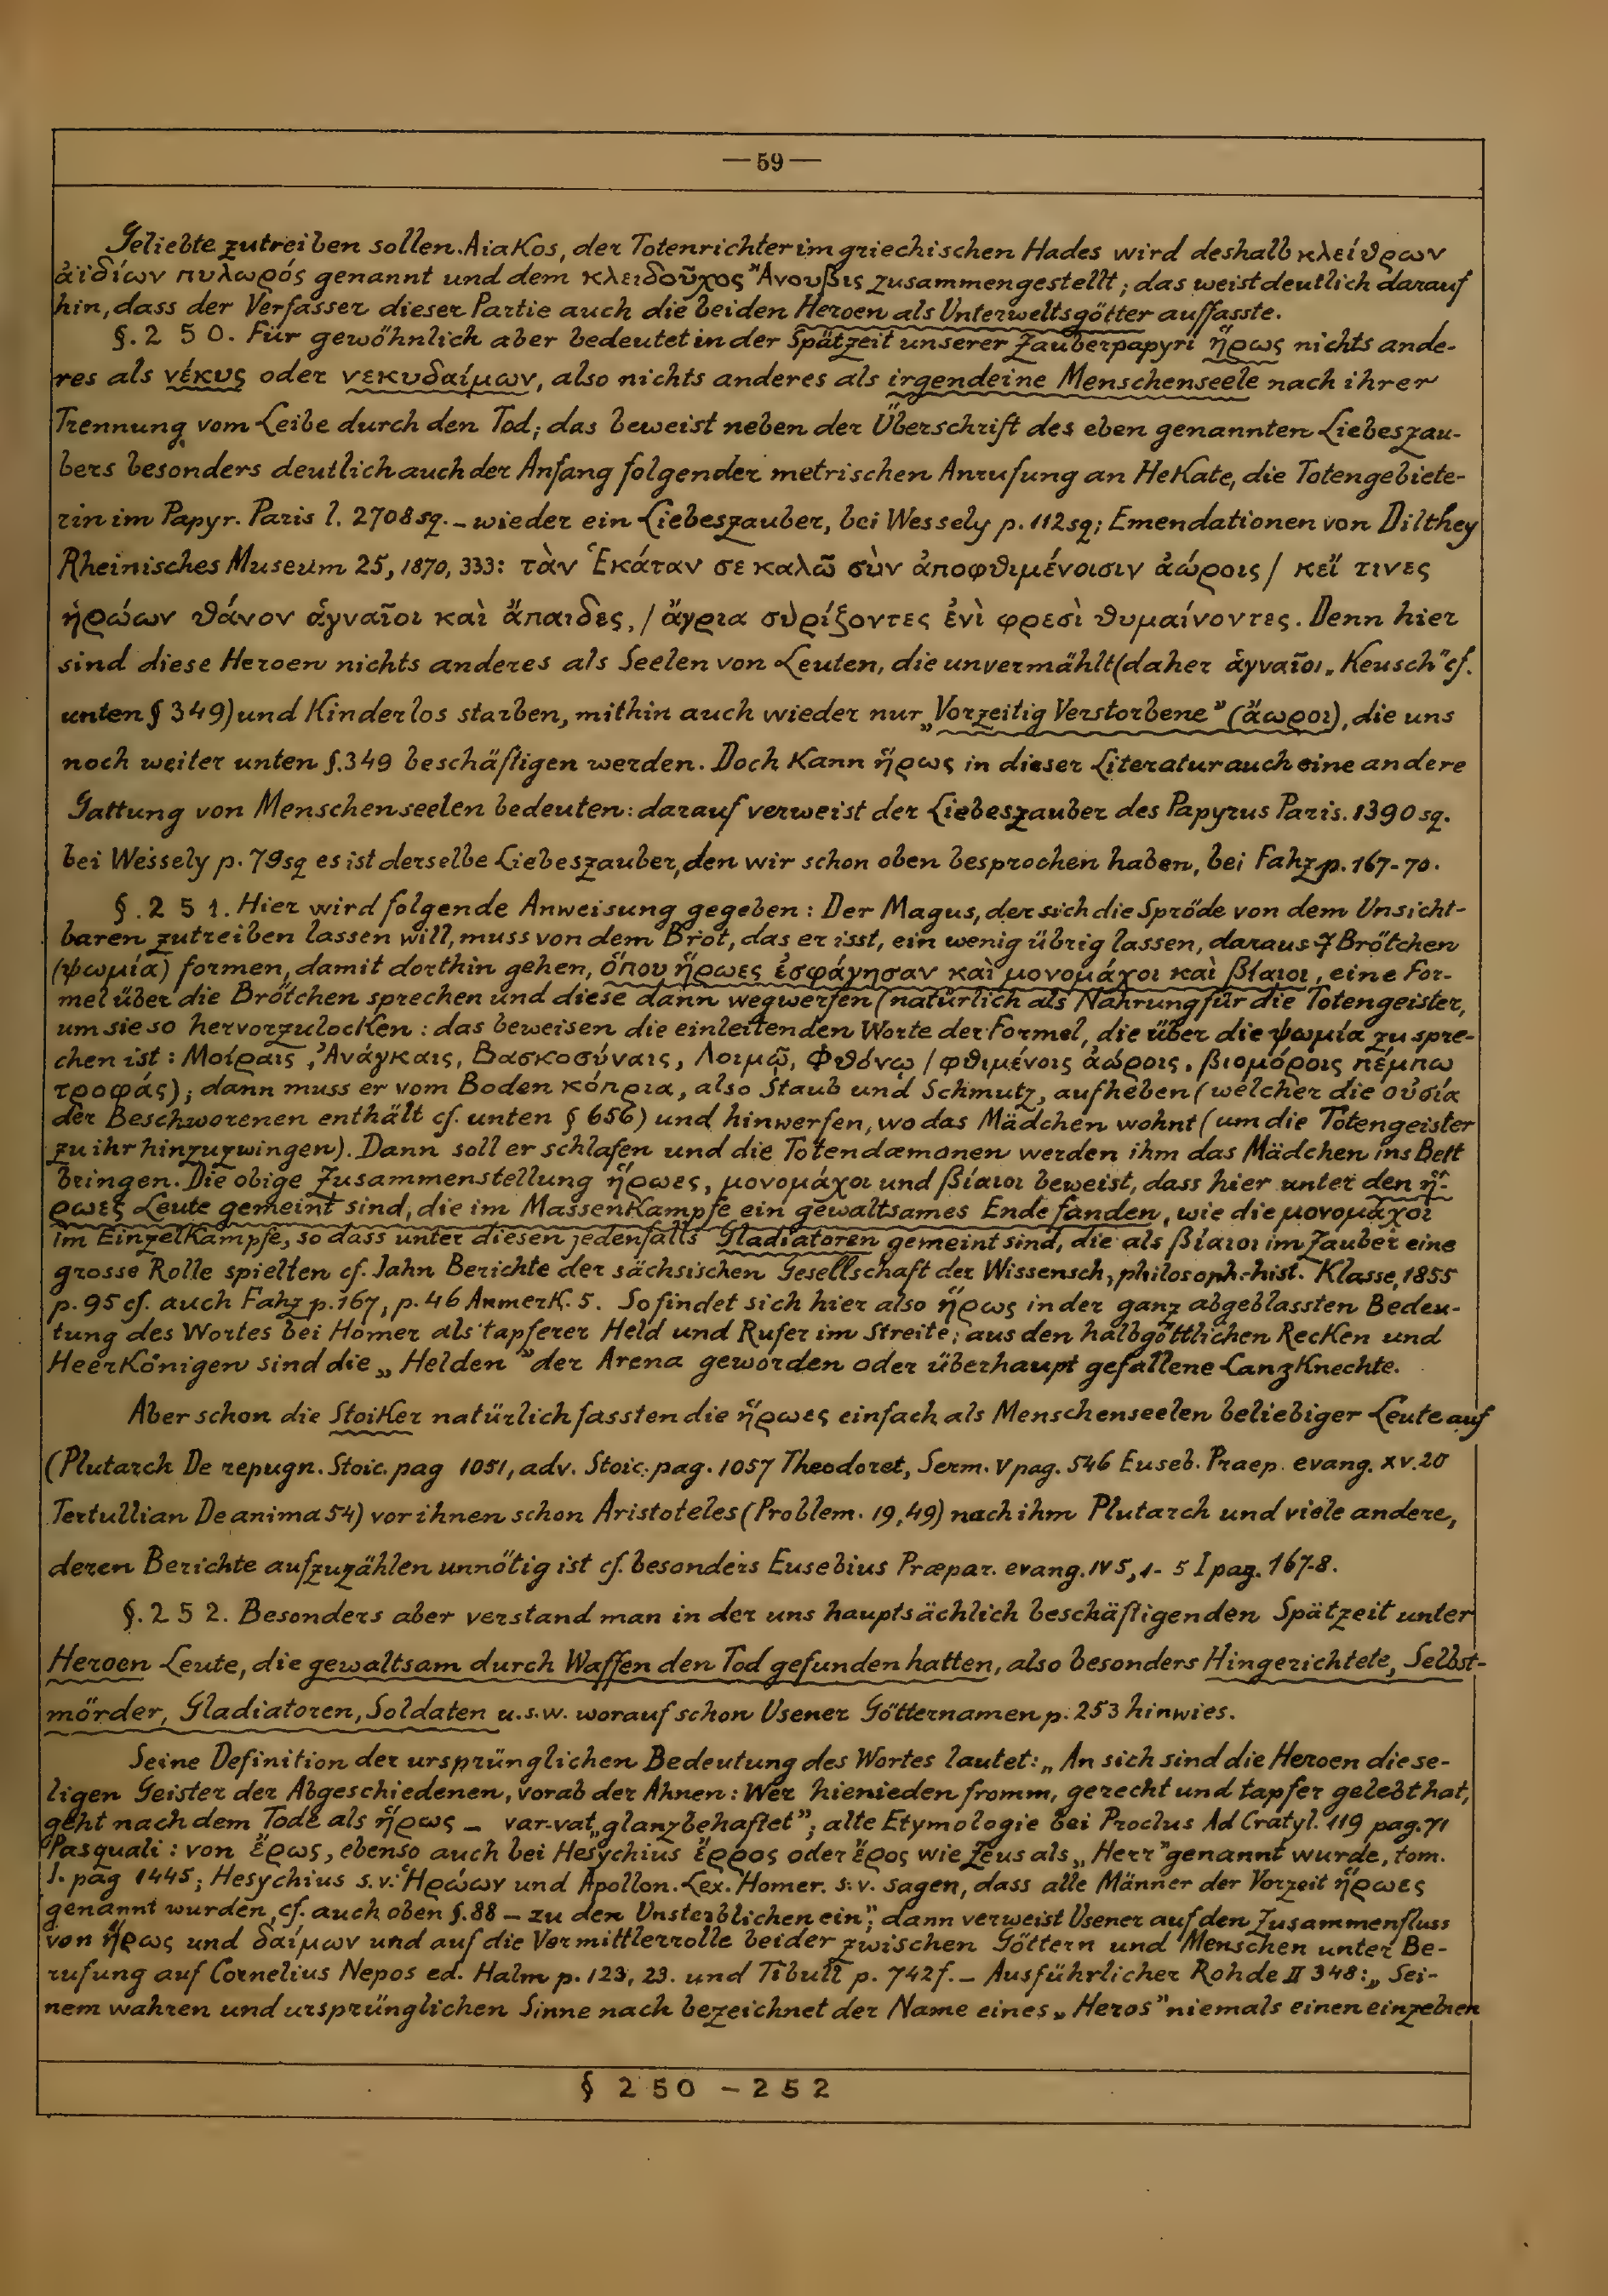 —59—
Geliebte zutreiben sollen. Aiakos, der Totenrichter im griechischen Hades wird deshalb κλείθρων
ἀϊδίων πυλωρός genannt und dem κλειδοῦχος Ἄνουβις zusammengestellt; das weist deutlich darauf
hin, dass der Verfasser dieser Partie auch die beiden Heroen als Unterweltsgötter auffasste.
§. 2 5 0. Für gewöhnlich aber bedeutet in der Spätzeit unserer Zauberpapyri ἥρως nichts ande-
res als νέκυς oder νεκυδαίμων, also nichts anderes als irgendeine Menschenseele nach ihrer
Trennung vom Leibe durch den Tod; das beweist neben der Überschrift des eben genannten Liebeszau-
bers besonders deutlich auch der Anfang folgender metrischen Anrufung an Hekate, die Totengebiete-
rin im Papyr. Paris l. 2708 sq. – wieder ein Liebeszauber, bei Wessely p. 112 sq; Emendationen von Dilthey
Rheinisches Museum 25, 1870, 333: τὰν Ἑκάταν σε καλῶ σὺν ἀποφθιμένοισιν ἀώροις / κεἴ τινες
ἡρώων θάνον ἁγναῖοι καὶ ἄπαιδες, / ἄγρια συρίζοντες ἐνὶ φρεσὶ θυμαίνοντες. Denn hier
sind diese Heroen nichts anderes als Seelen von Leuten, die unvermählt (daher ἁγναῖοι „Keusch" cf.
unten § 349) und Kinderlos starben, mithin auch wieder nur „Vorzeitig Verstorbene" (ἄωροι), die uns
noch weiter unten §. 349 beschäftigen werden. Doch kann ἥρως in dieser Literatur auch eine andere
Gattung von Menschenseelen bedeuten: darauf verweist der Liebeszauber des Papyrus Paris. 1390 sq.
bei Wessely p. 79 sq es ist derselbe Liebeszauber, den wir schon oben besprochen haben, bei Fahz p. 167-70.
§. 2 5 1. Hier wird folgende Anweisung gegeben: Der Magus, der sich die Spröde von dem Unsicht-
baren zutreiben lassen will, muss von dem Brot, das er isst, ein wenig übrig lassen, daraus 7 Brötchen
(ψωμία) formen, damit dorthin gehen, ὅπου ἥρωες ἐσφάγησαν καὶ μονομάχοι καὶ βίαιοι, eine For-
mel über die Brötchen sprechen und diese dann wegwerfen (natürlich als Nahrung für die Totengeister,
um sie so hervorzulocken: das beweisen die einleitenden Worte der Formel, die über die ψωμία zu spre-
chen ist: Μοίραις, Ἀνάγκαις, Βασκοσύναις, Λοιμῷ, Φθόνῳ / φθιμένοις ἀώροις, βιομόροις πέμπω
τροφάς); dann muss er vom Boden κόπρια, also Staub und Schmutz, aufheben (welcher die οὐσία
der Beschworenen enthält cf. unten § 656) und hinwerfen, wo das Mädchen wohnt (um die Totengeister
zu ihr hinzuzwingen). Dann soll er schlafen und die Totendæmonen werden ihm das Mädchen ins Bett
bringen. Die obige Zusammenstellung ἥρωες, μονομάχοι und βίαιοι beweist, dass hier unter den ἥ-
ρωες Leute gemeint sind, die im Massenkampfe ein gewaltsames Ende fanden, wie die μονομάχοι
im Einzelkampfe, so dass unter diesen jedenfalls Gladiatoren gemeint sind, die als βίαιοι im Zauber eine
grosse Rolle spielten cf. Jahn Berichte der sächsischen Gesellschaft der Wissensch, philosoph.-hist. Klasse, 1855
p. 95 cf. auch Fahz p. 167, p. 46 Anmerk. 5. So findet sich hier also ἥρως in der ganz abgeblassten Bedeu-
tung des Wortes bei Homer als tapferer Held und Rufer im Streite; aus den halbgöttlichen Recken und
Heerkönigen sind die „Helden" der Arena geworden oder überhaupt gefallene Lanzknechte.
Aber schon die Stoiker natürlich fassten die ἥρωες einfach als Menschenseelen beliebiger Leute auf
(Plutarch De repugn. Stoic. pag 1051, adv. Stoic. pag. 1057 Theodoret, Serm. V pag. 546 Euseb. Praep. evang. XV. 20
Tertullian De anima 54) vor ihnen schon Aristoteles (Problem. 19, 49) nach ihm Plutarch und viele andere,
deren Berichte aufzuzählen unnötig ist cf. besonders Eusebius Præpar. evang. IV 5, 1- 5 I pag. 167-8.
§. 2 5 2. Besonders aber verstand man in der uns hauptsächlich beschäftigenden Spätzeit unter
Heroen Leute, die gewaltsam durch Waffen den Tod gefunden hatten, also besonders Hingerichtete, Selbst-
mörder, Gladiatoren, Soldaten u.s.w. worauf schon Usener Götternamen p. 253 hinwies.
Seine Definition der ursprünglichen Bedeutung des Wortes lautet: „An sich sind die Heroen die se-
ligen Geister der Abgeschiedenen, vorab der Ahnen: Wer hienieden fromm, gerecht und tapfer gelebt hat,
geht nach dem Tode als ἥρως – var-vat „glanzbehaftet"; alte Etymologie bei Proclus Ad Cratyl. 119 pag. 71
Pasquali: von ἔρως, ebenso auch bei Hesychius ἔρρος oder ἔρος wie Zeus als „Herr" genannt wurde, tom.
I. pag 1445; Hesychius s.v. Ἡρώων und Apollon. Lex. Homer. s.v. sagen, dass alle Männer der Vorzeit ἥρωες
genannt wurden, cf. auch oben §. 88 – zu den Unsterblichen ein"; dann verweist Usener auf den Zusammenfluss
von ἥρως und δαίμων und auf die Vermittlerrolle beider zwischen Göttern und Menschen unter Be-
rufung auf Cornelius Nepos ed. Halm p. 123, 23. und Tibull p. 742 f. – Ausführlicher Rohde II 348: „Sei-
nem wahren und ursprünglichen Sinne nach bezeichnet der Name eines „Heros" niemals einen einzelnen
§ 250 – 252